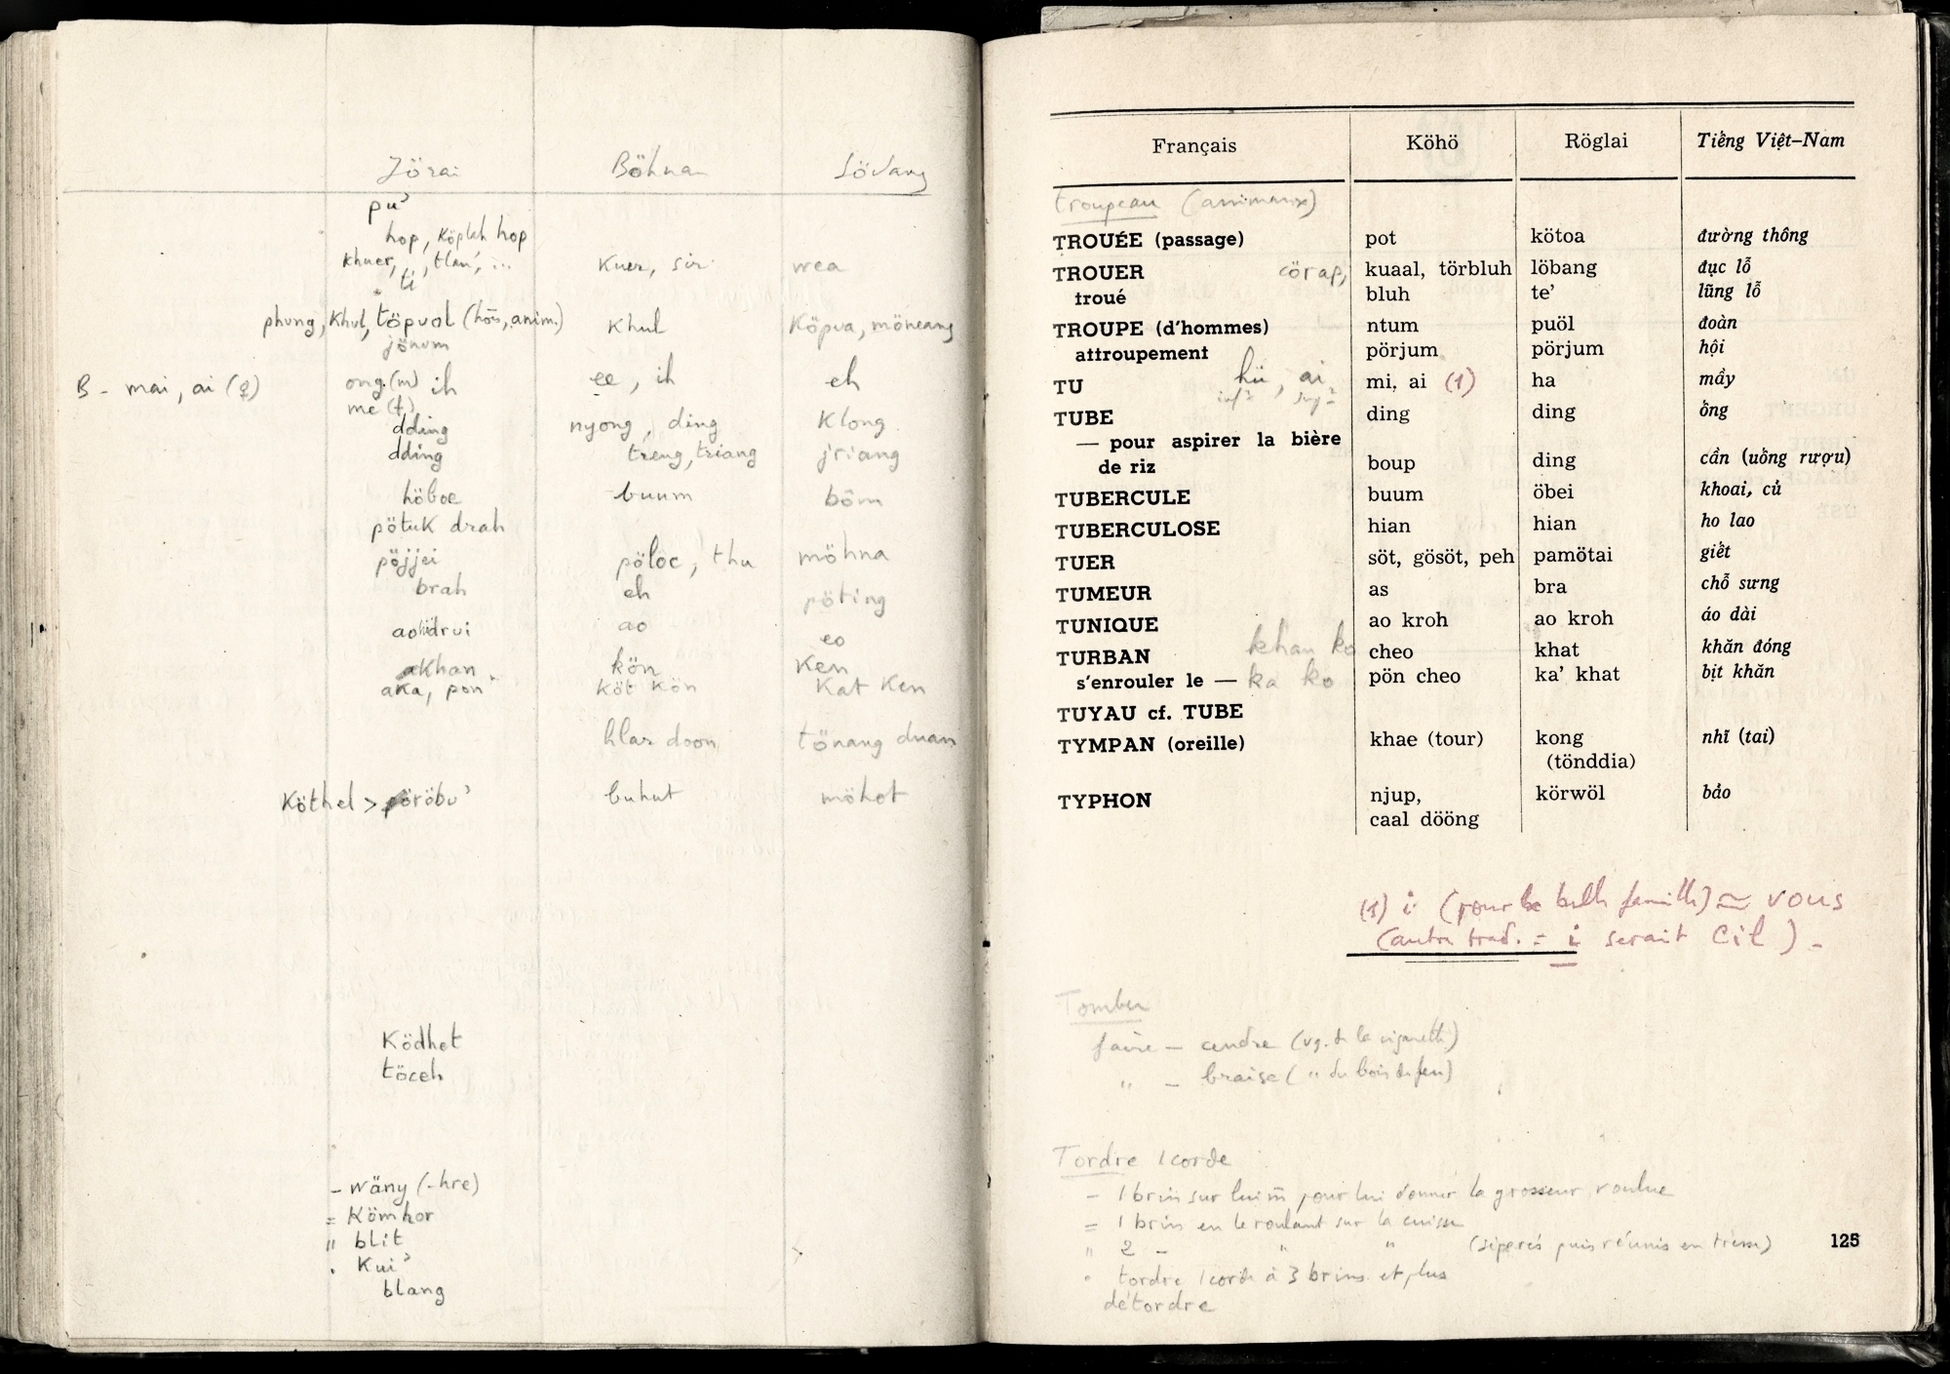 Jörai Böhnar Lövang
pu'
hop, Köplah hop
khuer, ti, tlan', ... Kuer, sir wea
phung, Khul, töpuol (hōs, anim.) Khul Köpua, möneang
jönum
B - mai, ai (♀) ong (m) ih ee, ih eh
me (f)
dding nyong, ding Klong
dding treng, triang jriang
höboe buum bôm
pötuk drah
pöjjei pölöc, thu möhna
brah eh pöting
ao ao eo
akhan kön Ken
aka, pon' köt kön Kat Ken
hlar doon tönang duan
Köthel > pöröbu' buhut möhot
Ködhet
töceh
- wäny (-hre)
= Kömhor
" blit
. Kui'
blang
Français Köhö Röglai Tiếng Việt–Nam
troupeau (animaux)
TROUÉE (passage) pot kötoa đường thông
TROUER cörap, kuaal, törbluh löbang đục lỗ
troué bluh te' lũng lỗ
TROUPE (d'hommes) ntum puöl đoàn
attroupement pörjum pörjum hội
TU hü, ai mi, ai (1) ha mầy
TUBE ding ding ống
— pour aspirer la bière
de riz boup ding cần (uống rượu)
TUBERCULE buum öbei khoai, củ
TUBERCULOSE hian hian ho lao
TUER söt, gösöt, peh pamötai giết
TUMEUR as bra chỗ sưng
TUNIQUE ao kroh ao kroh áo dài
TURBAN khan ko cheo khat khăn đóng
s'enrouler le — ka ko pön cheo ka' khat bịt khăn
TUYAU cf. TUBE
TYMPAN (oreille) khae (tour) kong nhĩ (tai)
(tönddia)
TYPHON njup, körwöl bảo
caal dööng
(1) i (pour la belle famille) ≃ vous
(autre trad. = i serait Cil) -
Tomber
faire - cendre (vg. de la cigarette)
" - braise ( " du bois de feu)
Tordre 1 corde
- 1 brin sur lui m̄ pour lui donner la grosseur voulue
= 1 brin en le roulant sur la cuisse
" 2 - " " (séparés puis réunis en tresse)
" tordre 1 corde à 3 brins et plus
détordre
125